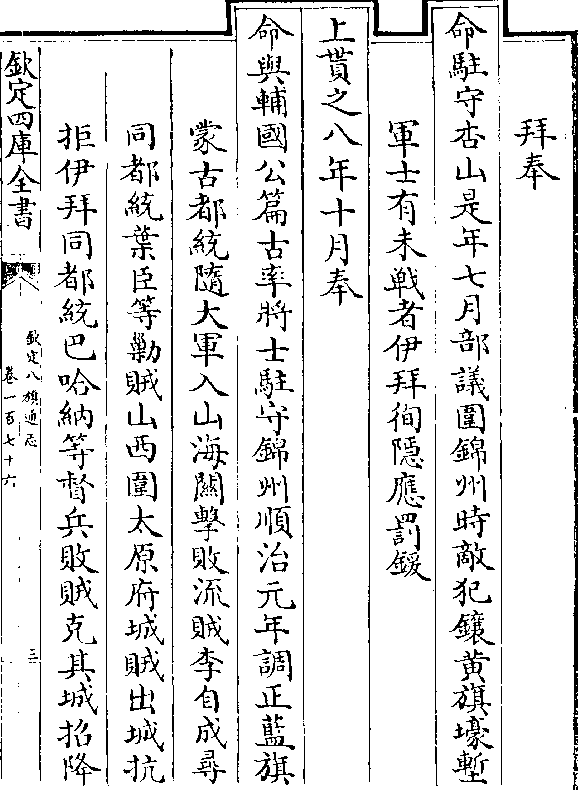 拜奉
命駐守杏山是年七月部議圍錦州時敵犯鑲黃旗壕塹
軍士有未戰者伊拜徇隱應罰鍰
上貰之八年十月奉
命與輔國公篇古率將士駐守錦州順治元年調正藍旗
蒙古都統隨大軍入山海關擊敗流賊李自成尋
同都統葉臣等勦賊山西圍太原府城賊出城抗
拒伊拜同都統巴哈納等督兵敗賊克其城招降
欽定四庫全書
欽定八旗通志
卷一百七十六
三